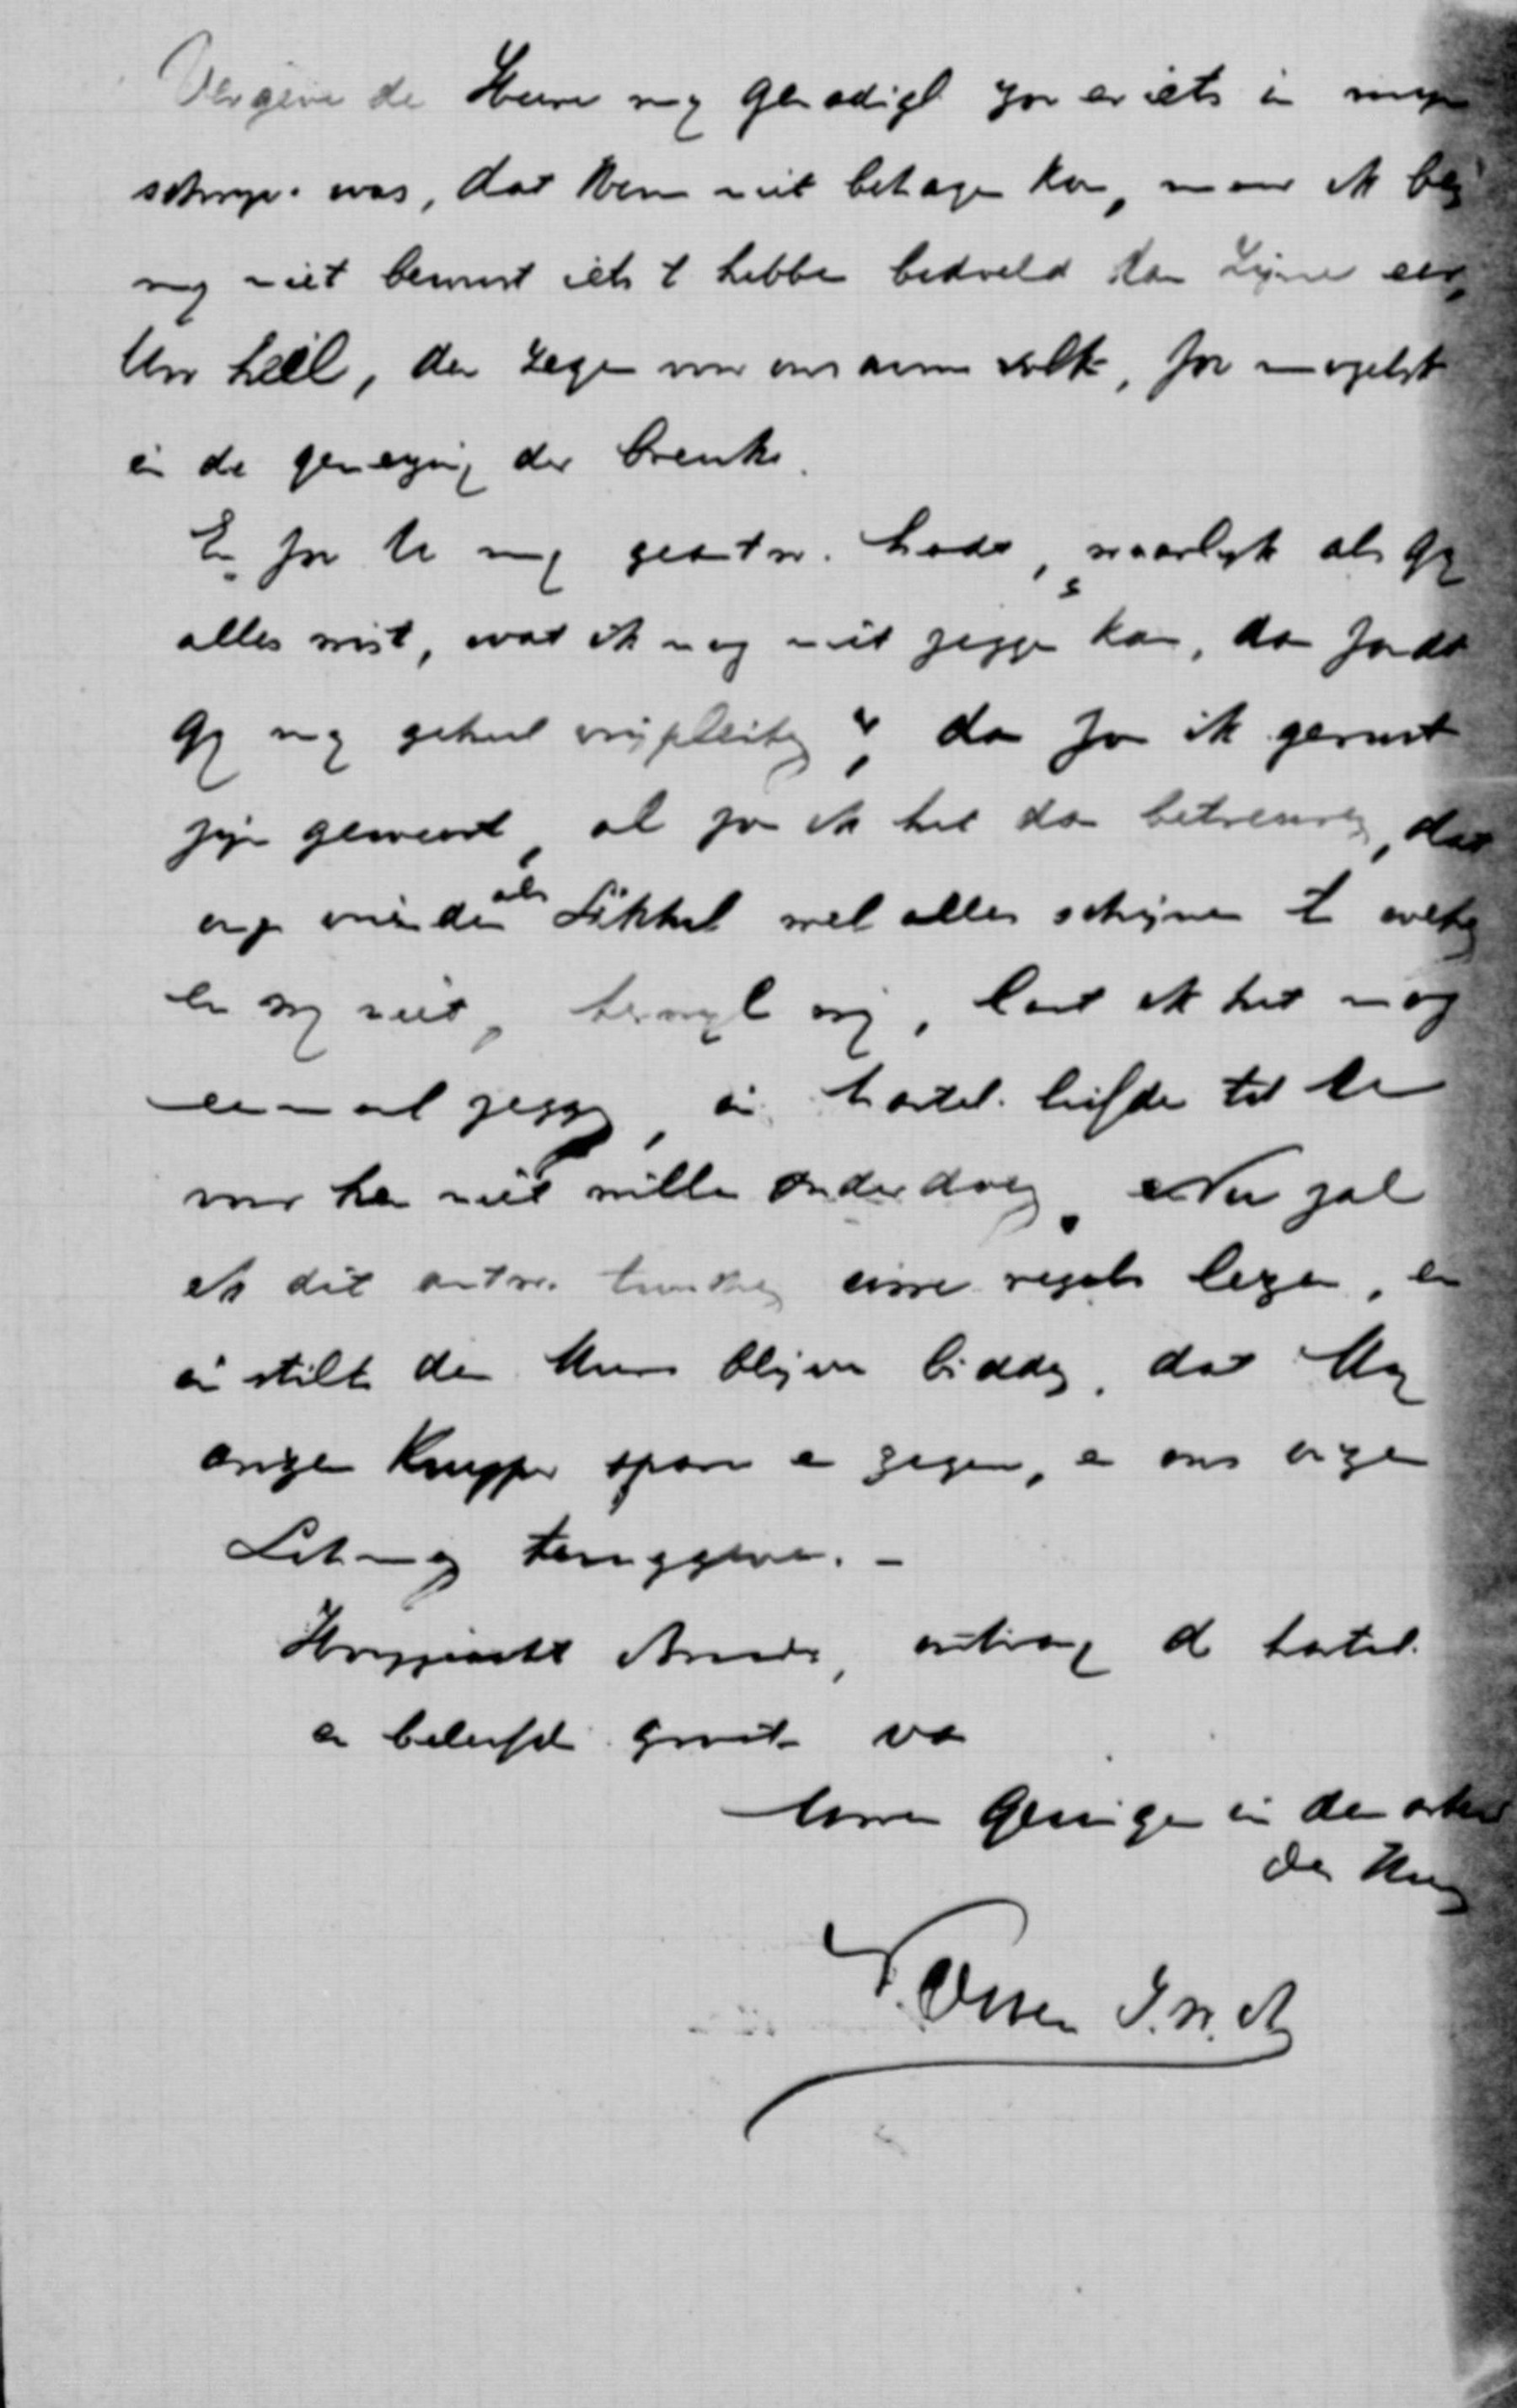 Vergeve de Heere mij genadigl zoo er iets in mijn
schrijv. was, dat Hem niet behagen kon, maar ik ben
mij niet bewust iets t hebben bedoeld dan Zijne eer,
Uw heil, den zegen voor ons arme volk, zoo mogelijk
in de
En zoo U mij geantw. hadt, waarlijk als Gij
alles wist, wat ik nog niet zeggen kan, dan zoudt
Gij mij geheel vrijpleiten & dan zou ik gerust
zijn geweest, al zou ik het dan betreuren, dat
onze vrienden als Sikkel wel alles schijnen te weten
en wij niet, terwijl wij, laat ik het nog
eenmaal zeggen, in hartel. liefde tot U
voor hen niet willen onderdoen. Nu zal
ik dit antw. regels legen, en
in stilte den Heere blijven bidden, dat Hij
onzen Kuyper spare en zegene, en ons onzen
teruggeve. -
Hooggeachte Broeder, ontvang d hartel.
en beleefde groete van
Uwen Geringen in den arbeid
des Heeren